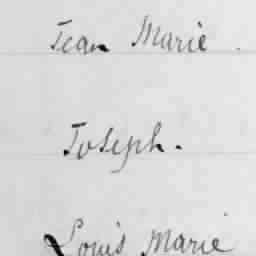 Jean Marie
Joseph.
Louis Marie